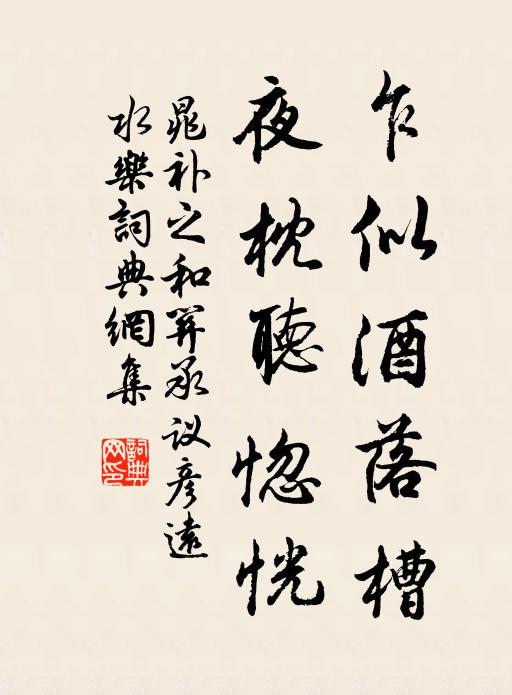 乍似酒落槽
夜枕聽惚恍
晁补之和羿承议彦遠
水樂詞典網集
詞典網印